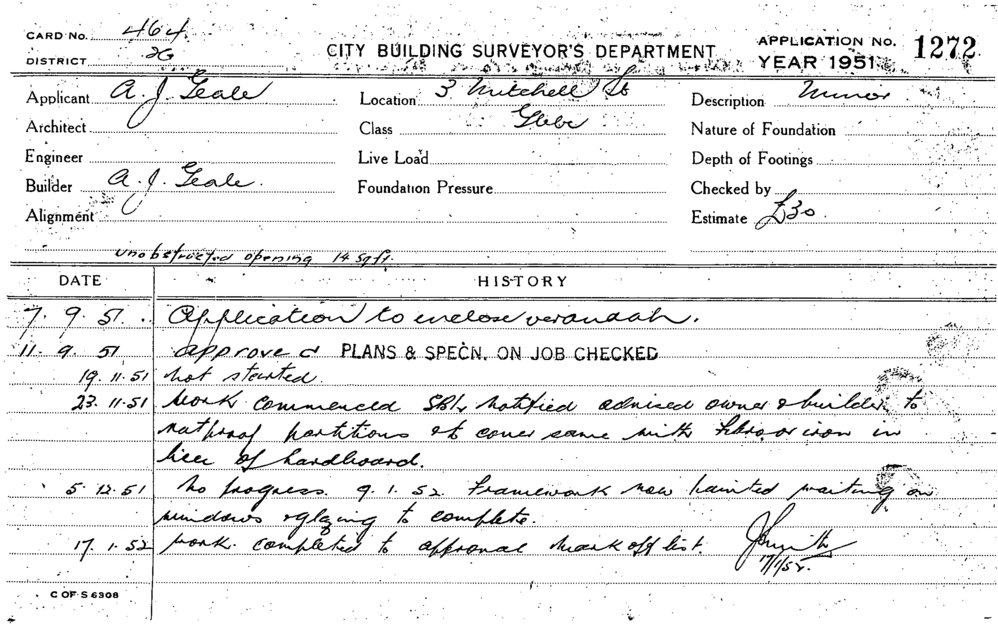 CARD No. 464
DISTRICT 26
CITY BUILDING SURVEYOR'S DEPARTMENT
APPLICATION No. 1272
YEAR 1951
Applicant A. J. Geale
Location 3 Mitchell St
Description Minor
Architect
Class Glebe
Nature of Foundation
Engineer
Live Load
Depth of Footings
Builder A. J. Geale.
Foundation Pressure
Checked by
Alignment
Estimate £30.
unobstructed opening 14 sq ft.
DATE HISTORY
7. 9. 51. Application to enclose verandah.
11. 9. 51 approved PLANS & SPECN. ON JOB CHECKED
19. 11. 51 not started.
23. 11. 51 Work commenced notified advised owner & builder to
ratproof partitions & cover same with fibro or iron in
lieu of hardboard.
5. 12. 51 No progress. 9. 1. 52 Framework now painted waiting on
windows & glazing to complete.
17. 1. 52 work completed to approval Mark off list.
17/1/52.
C OF S 6308